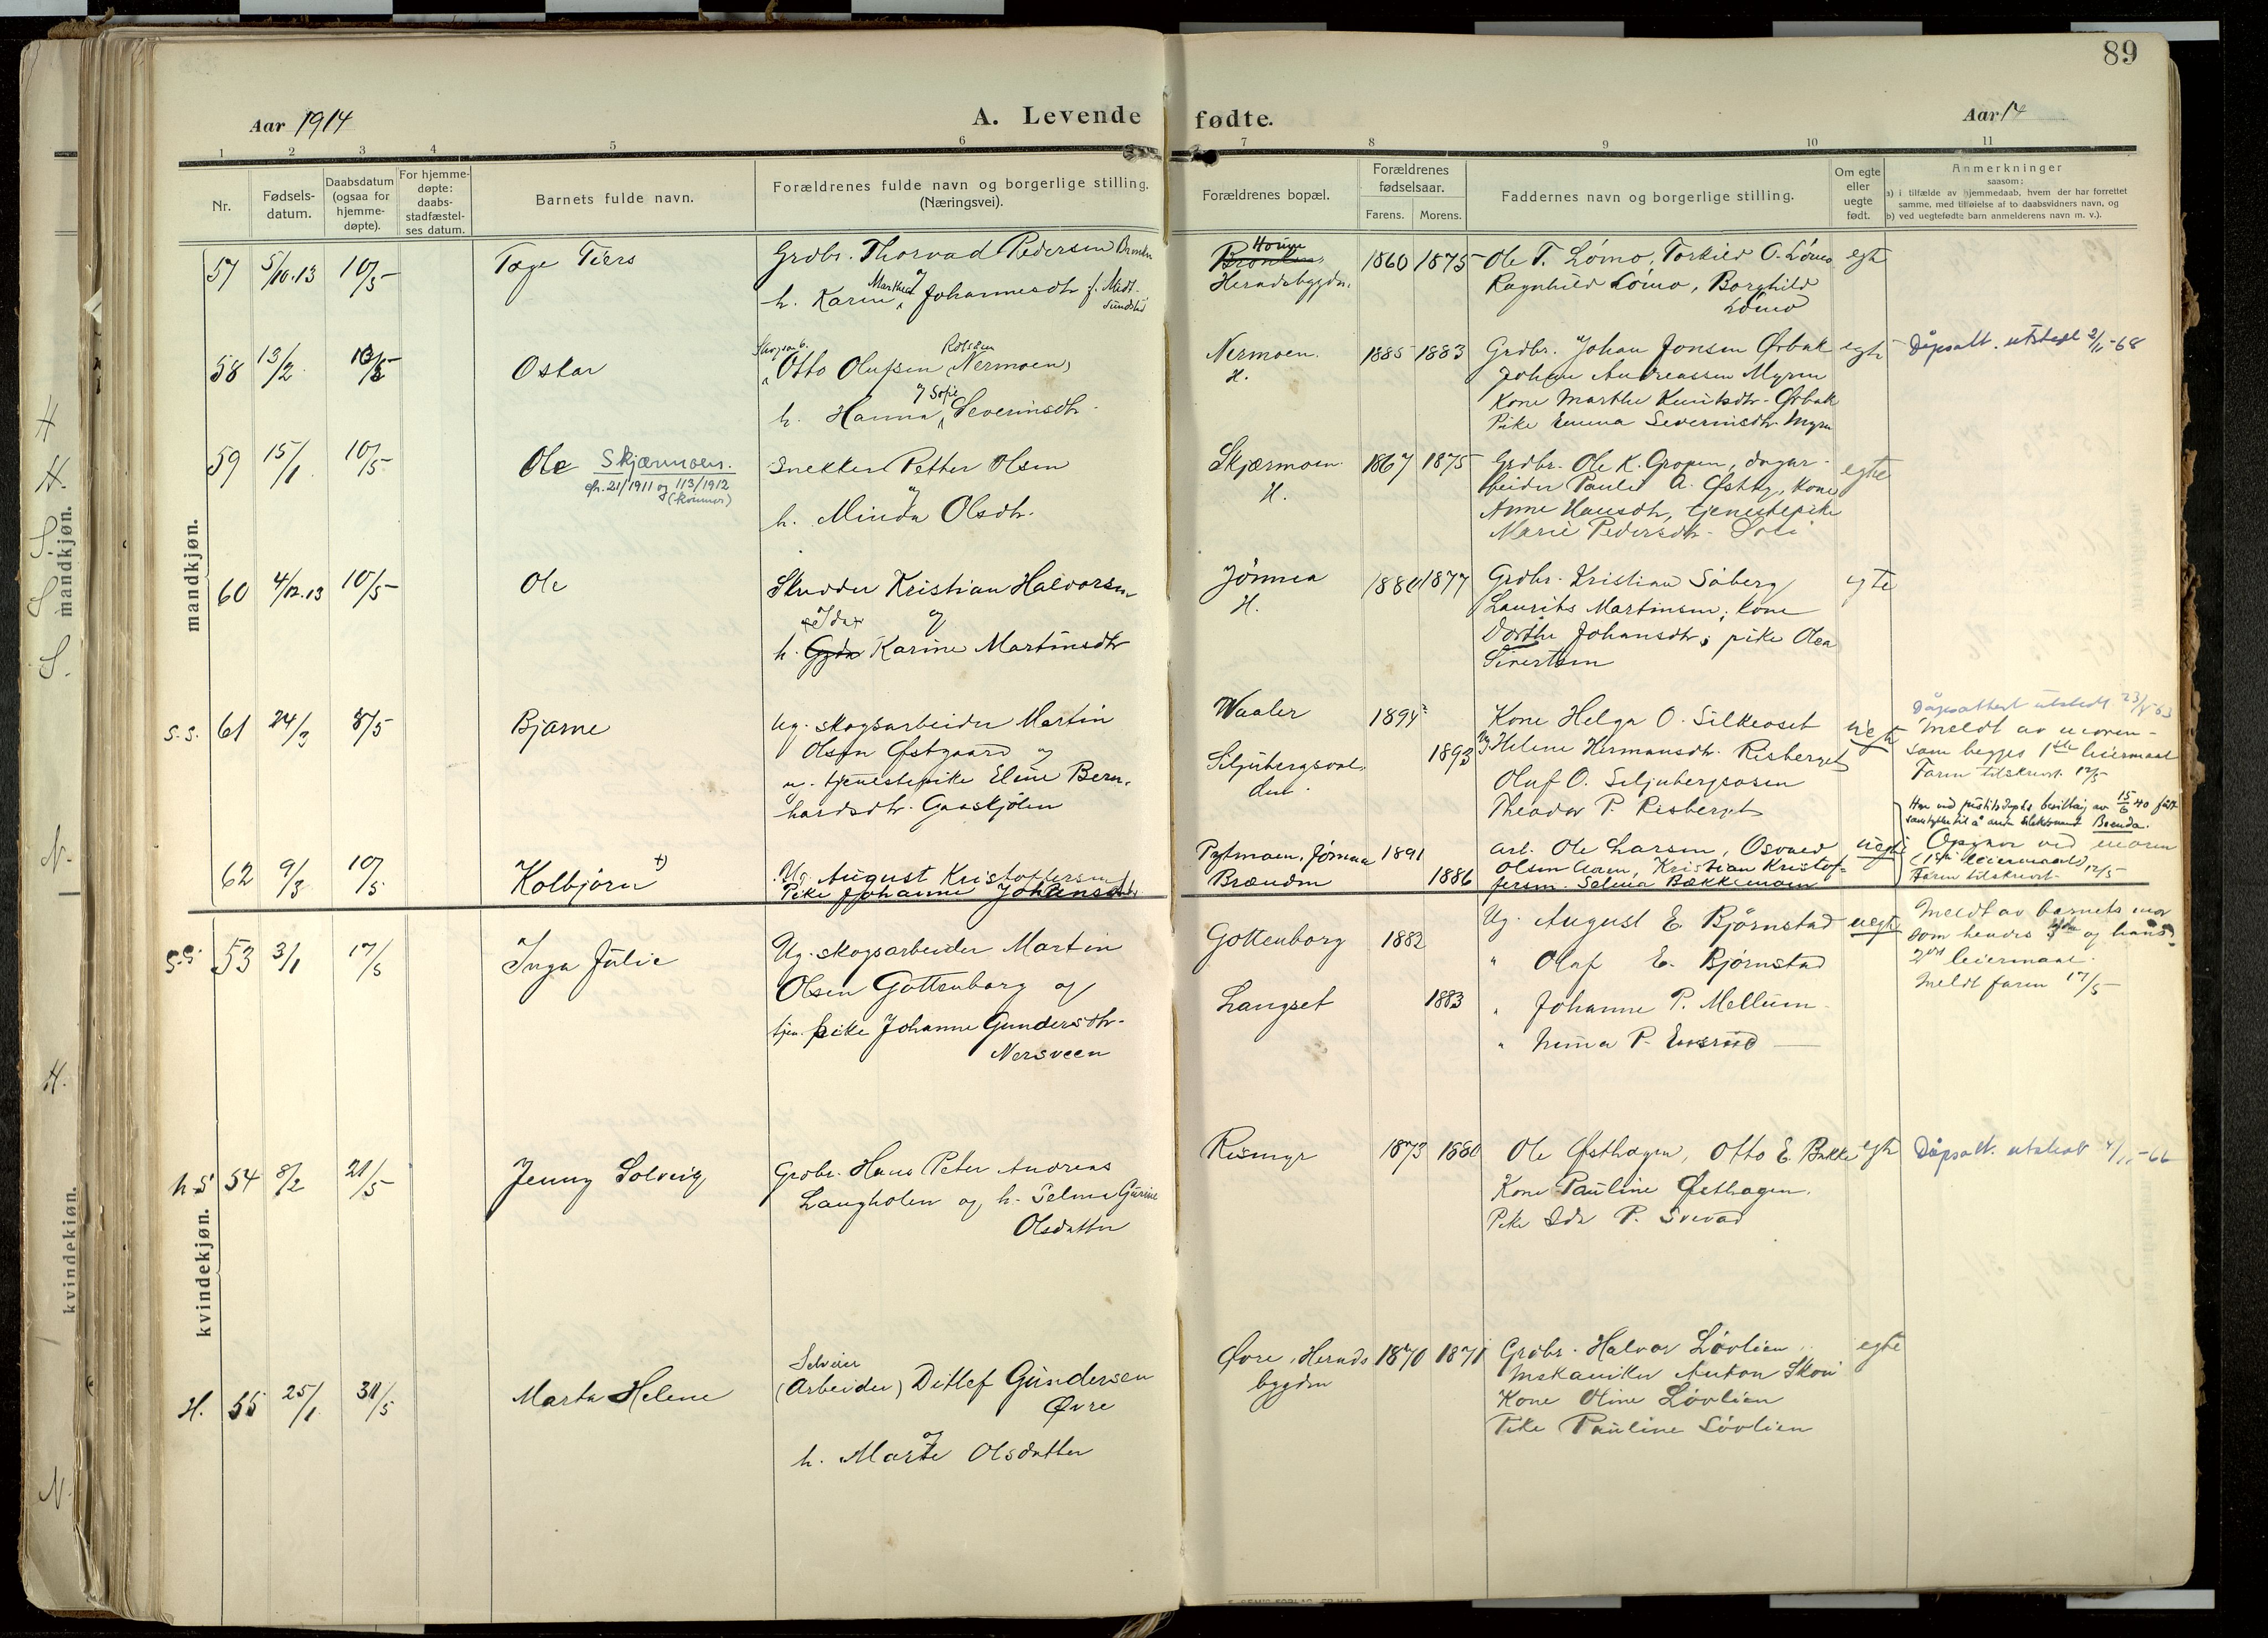 89
Aar 1914
A. Levende
fødte.
Aar 14
1 2 3 4 5 6 7 8 9 10 11
Nr.
Fødsels-
datum.
Daabsdatum
(ogsaa for
hjemme-
døpte).
For hjemme-
døpte:
daabs-
stadfæstel-
ses datum.
Barnets fulde navn.
Forældrenes fulde navn og borgerlige stilling.
(Næringsvei).
Forældrenes bopæl.
Forældrenes
fødselsaar.
Farens. Morens.
Faddernes navn og borgerlige stilling.
Om egte
eller
uegte
født.
Anmerkninger
saasom:
a) i tilfælde av hjemmedaab, hvem der har forrettet
samme, med tilføielse af to daabsvidners navn, og
b) ved uegtefødte barn anmelderens navn m. v.).
mandkjøn.
57 5/10.13 10/5
Grdbr. Thorvad Pedersen
og
h. Karin Johannesdtr f. Midt-
sundstad
Heradsbygdn.
1860 1875
Ole T. Lømo, Torkild O. Lømo
Ragnhild Lømo, Borghild
Lømo
egte
58 13/2
Oskar
Otto Olufsen (Nermoen)
og Sofie
h. Hanna Severinsdtr.
Nermoen.
H.
1885 1883
Grdbr. Johan Jonsen Ørbæk
Johan Andreassen Myren
Kone Marthe Knutsdtr. Ørbæk
Pike Emma Severinsdtr. Myren
egte
Dåpsatt. utstedt 2/11-68
59 15/1 10/5
Ole Skjærmoen.
cfr. 21/1911 og 113/1912
Snekker Petter Olsen
og
h. Minda Olsdtr.
Skjærmoen
H.
1867 1875
Grdbr. Ole K. Gropen, dagar-
beider Paul A. Østby, Kone
Anne Hansdtr, tjenestepike
Marie Pedersdtr.
egte
60 4/12.13 10/5
Ole
Skrædder Kristian Halvorsen
xIdax og
h. Gyda Karine Martinsdtr
Jømna
H.
1880 1877
Grdbr. Kristian Såberg
Laurits Martinsen, kone
Dorthe Johansdtr; pike Olea
Sivertsen
egte
S.S. 61 24/3 8/5
Bjarne
Ug. skogsarbeider Martin
Olsen Østgaard og
ug. tjenestepike Eline Bern-
hardsdtr. Gaaskjølen
Waaler
1894
1893
Kone Helga O. Silkeoset
Ug Helene Hermansdtr. Risberget
Oluf O. Siljubergsosen
Theodor P. Risberget
uegte
Dåpsattest utstedt
meldt av moren
som begges 1ste leiermaal
Faren tilskrevet 12/5
62 9/3 10/5
Kolbjørn +)
Ug. August Kristoffersen
Pike Johanne Johansdtr
Pytmoen, Jømna
Brænden
1891
1886
arb. Ole Larsen, Osvald
Olsen Aaen, Kristian Kristof-
fersen. Selma Bækkemoen
uegte
Opgivn ved moren
(1ste leiermaal)
Faren tilskrevet 12/5
kvindekjøn.
S.S. 53 3/1 17/5
Inga Julie
Ug. skogsarbeider Martin
Olsen Gottenborg og
tjen. pike Johanne Gundersdtr.
Nersveen
Gottenborg
Langset
1882
1883
Ug. August E. Bjørnstad
" Olaf E. Bjørnstad
" Johanne P. Mellum
" Numa P.
uegte
Meldt av barnets mor
som hendes og hans
2det leiermaal.
Meldt faren 17/5
h.S 54 8/2 21/5
Jenny Solveig
Grdbr. Hans Peter Andreas
Langholen og h. Selma Gurine
Olsdatter
Rismyr
1873 1880
Ole Østhagen, Otto E. Bakke
Kone Pauline Østhagen.
Pike Ida P.
egte
Dåpsatt. utstedt 4/11-66
H. 55 25/1 31/5
Marta Helene
Selveier
(Arbeider) Ditlef Gundersen
Øvre
og
h. Marte Olsdatter
Øvre, Herads
bygden
1870 1871
Grdbr. Halvor Løvlien
Mekaniker Anton Skou
Kone Oline Løvlien
Pike Pauline Løvlien
egte